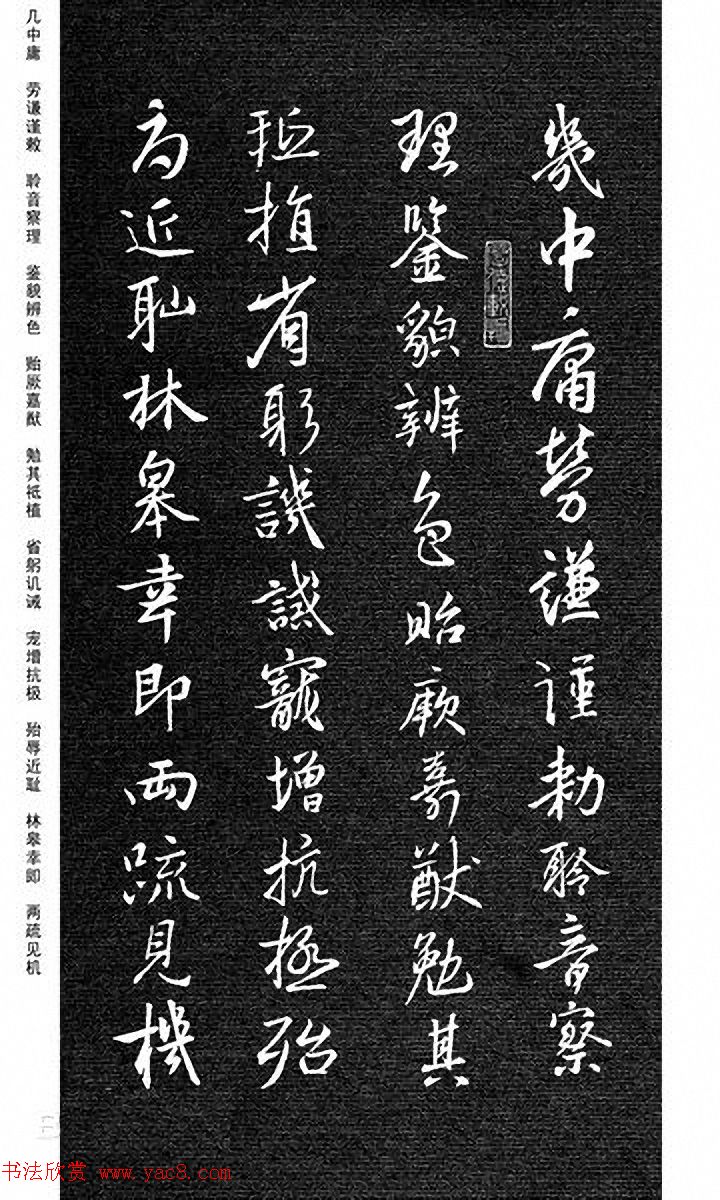 幾中庸勞謙謹勅聆音察
理鑒貌辨色貽厥嘉猷勉其
祗植省躬譏誡寵增抗極殆
辱近耻林皋幸即兩疏見機
几中庸 劳谦谨敕 聆音察理 鉴貌辨色 贻厥嘉猷 勉其祗植 省躬讥诫 宠增抗极 殆辱近耻 林皋幸即 两疏见机
书法欣赏 www.yac8.com